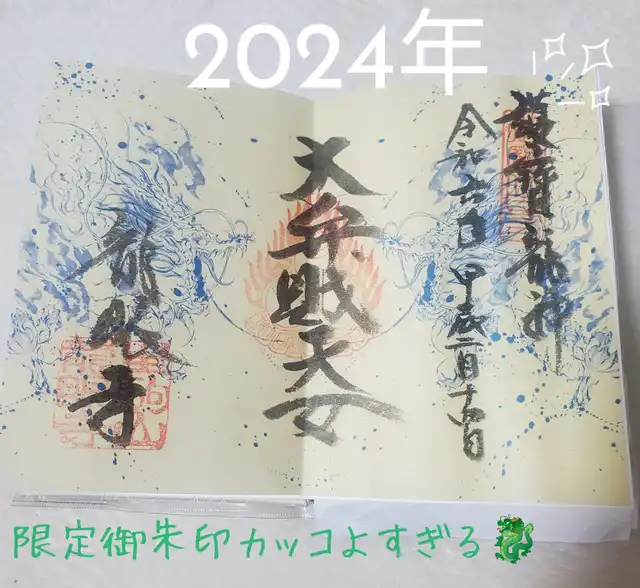 2024年
龍神
令和六年 甲辰一月十四日
大弁財天女
限定御朱印カッコよすぎる🐉